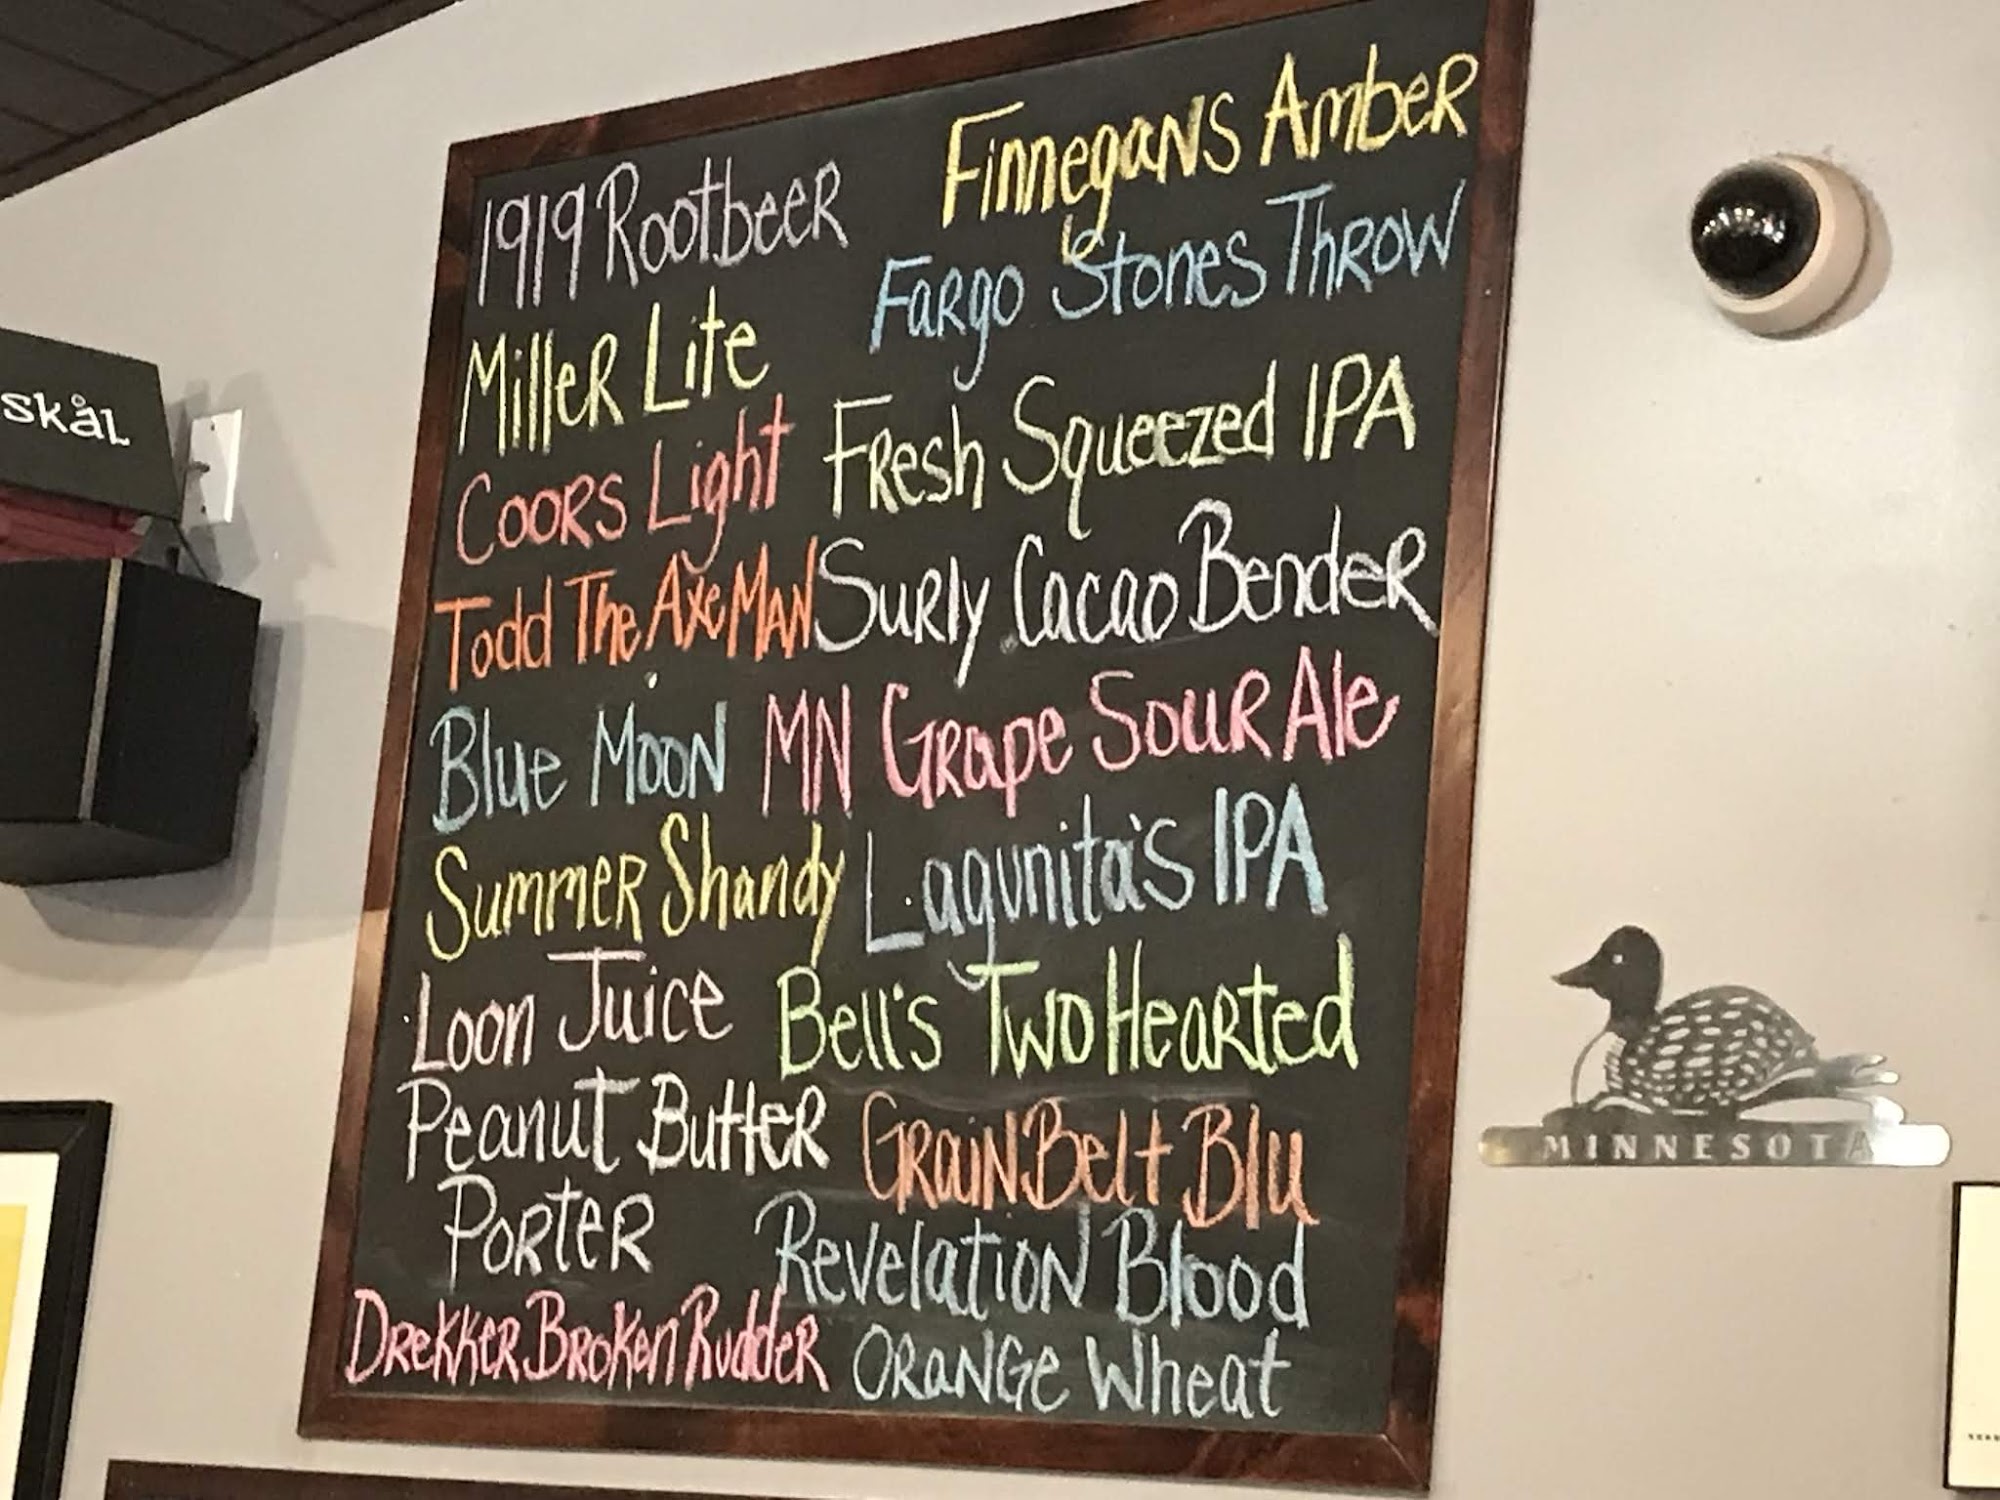 skål
1919 Rootbeer
Miller Lite
Coors Light
Todd The Axe Man
Blue Moon
Summer Shandy
Loon Juice
Peanut Butter
Porter
Drekker Broken Rudder
Finnegans Amber
Fargo Stones Throw
Fresh Squeezed IPA
Surly Cacao Bender
MN Grape Sour Ale
Lagunita's IPA
Bell's Two Hearted
Grain Belt Blu
Revelation Blood
Orange Wheat
MINNESOTA